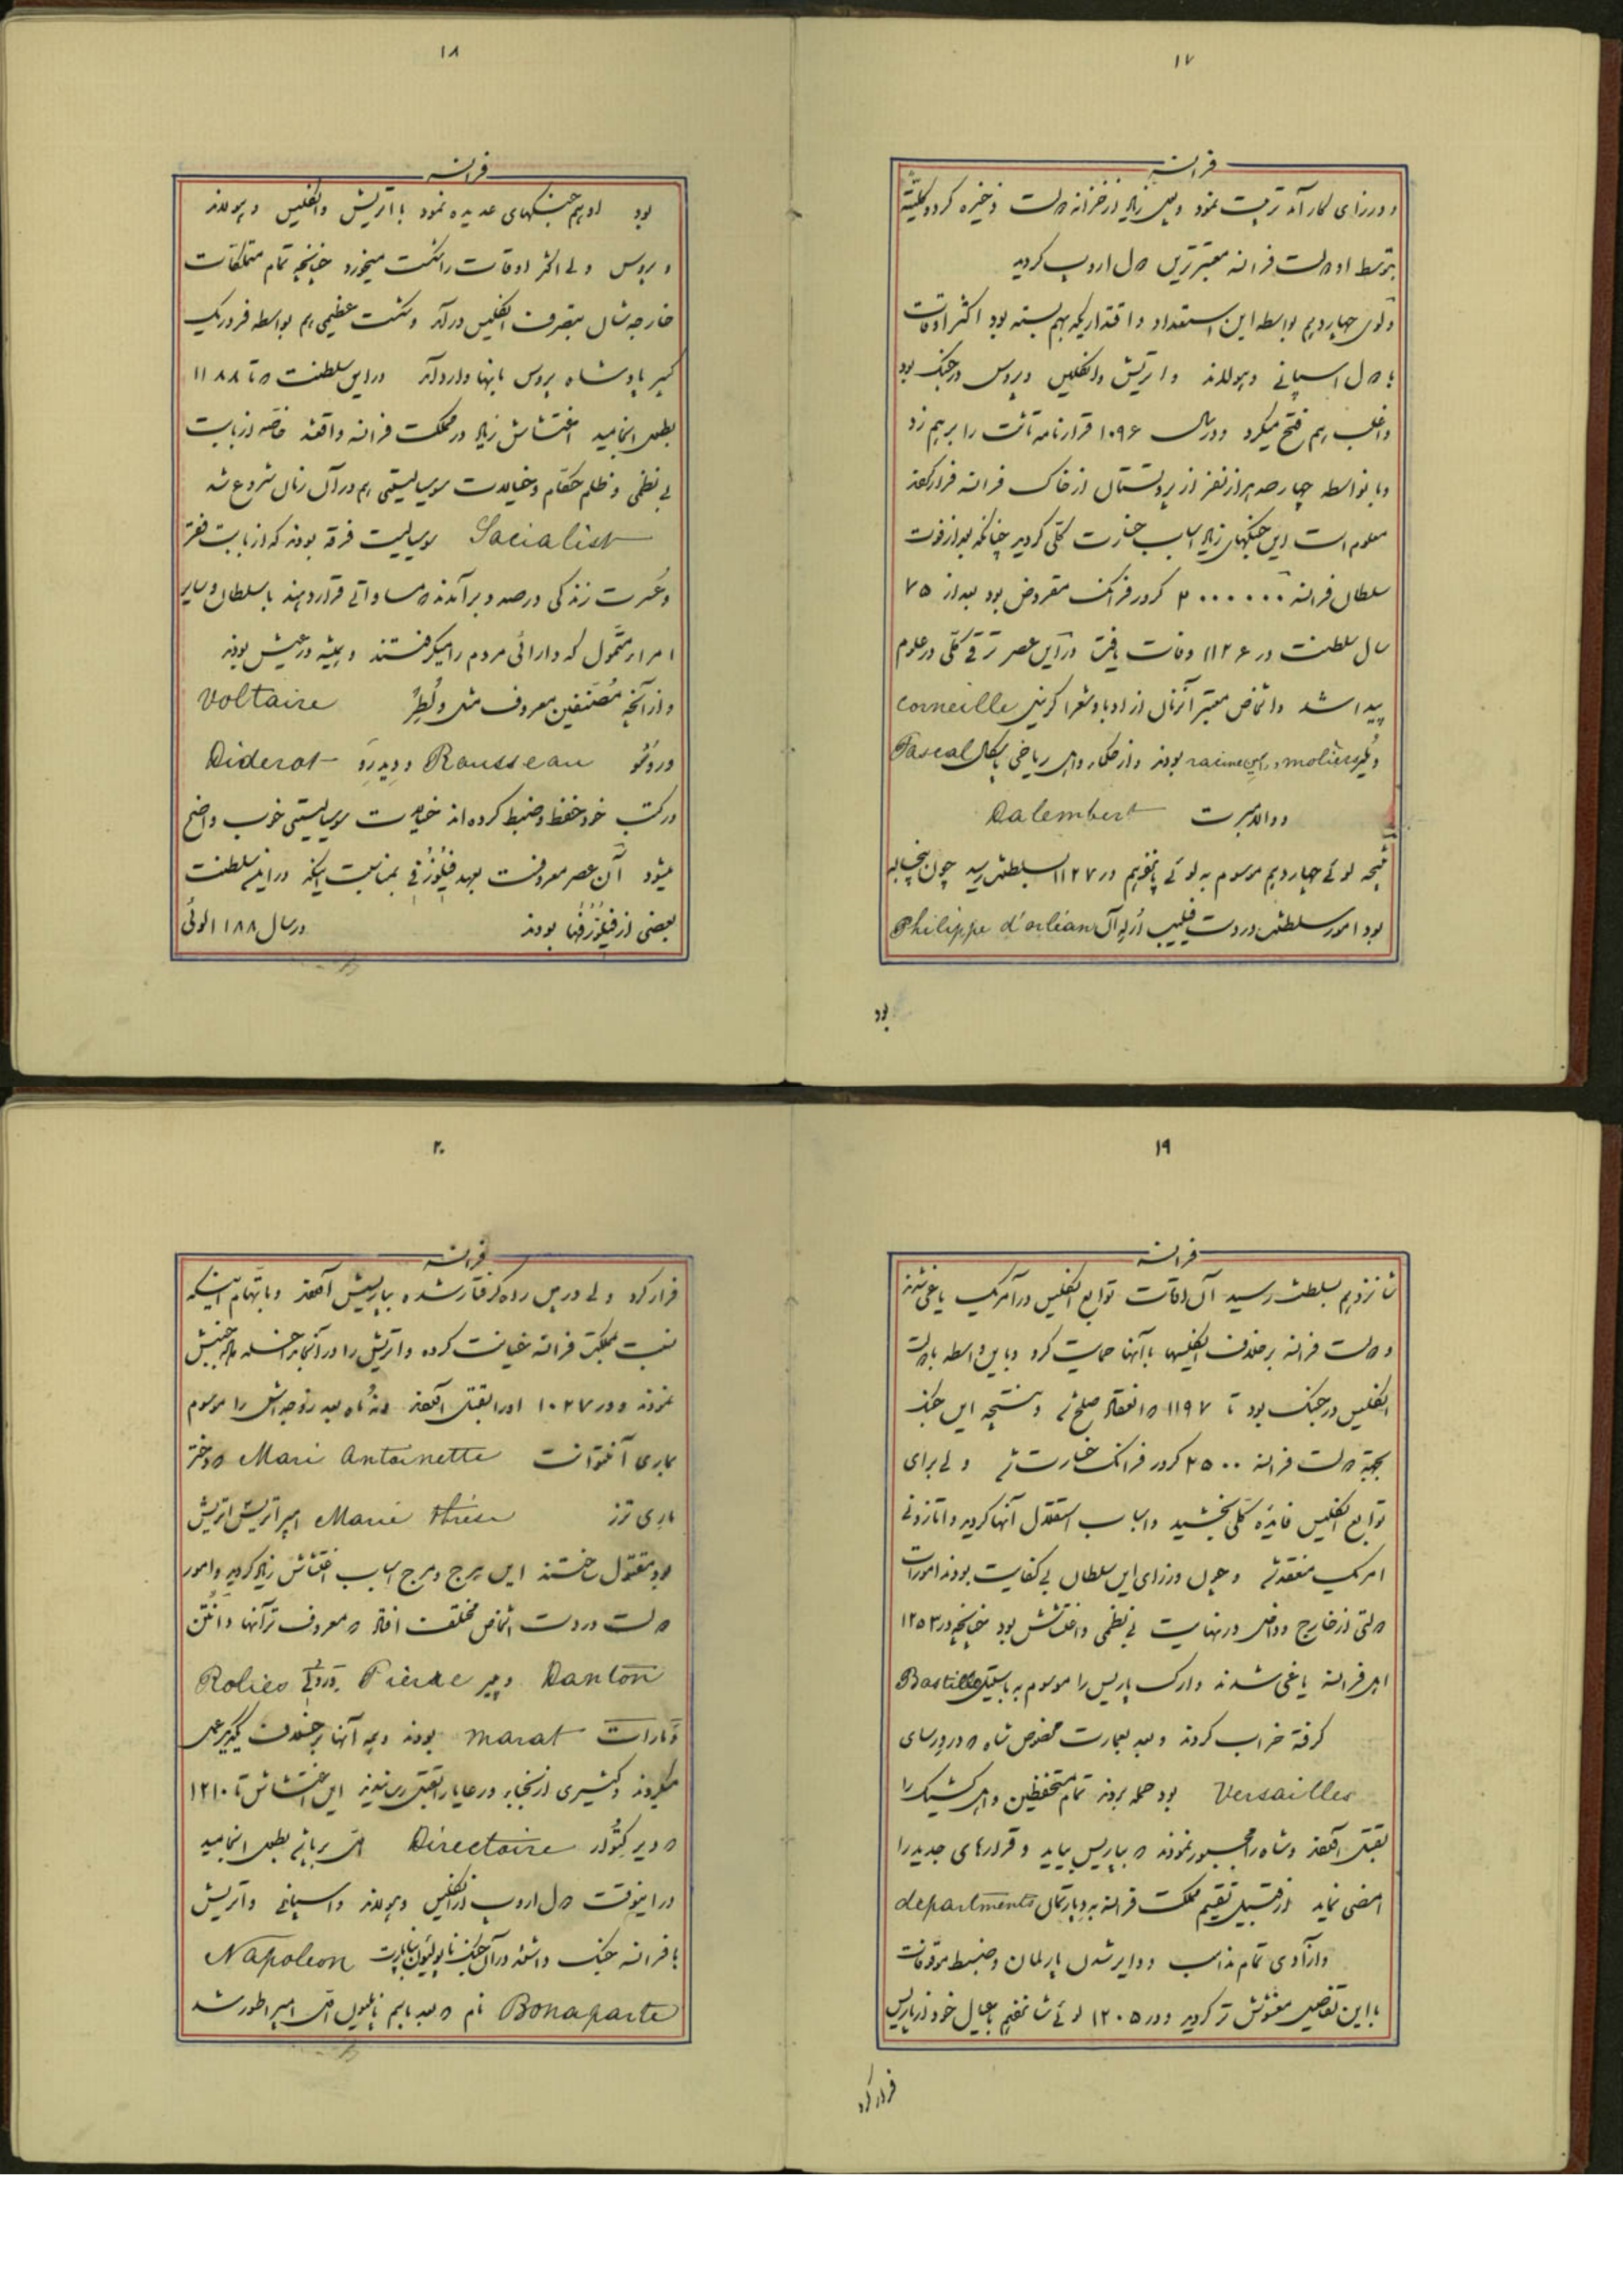 ۱۷
فرانسه
و وزرای کارآمد تربیت نمود و پول زیاد از خزانه دولت ذخیره کرد و کلیّةً
بتوسط او دولت فرانسه معتبرترین دول اروپ گردید
و لوی چهاردهم بواسطه این استعداد و اقتداریکه بهم بسته بود اکثر اوقات
با دول اسپانی و هولاند و اتریش و انگلیس و پروس در جنگ بود
و اغلب هم فتح میکرد و در سال ۱۰۹۶ قرارنامه نانت را برهم زد
و باینواسطه چهار صد هزار نفر از پروتستمال از خاک فرانسه فرار کردند
معلوم است این جنگهای زیاد اسباب خسارت کلّی گردید چنانکه بعد از فوت
سلطان فرانسه ۳۰۰۰۰۰۰ کرور فرانک مقروض بود بعد از ۷۵
سال سلطنت در ۱۱۲۶ وفات یافت در این عصر ترقی کلّی در علوم
پیدا شد و اشخاص معتبر آنزمان از ادبا و شعرا کرنیل Corneille
و مُلیر moliere و راسین racine بودند و از حکما و اهل ریاضی پاسکال Pascal
و دالامبرت Dalembert
نتیجه لوئی چهاردهم موسوم به لوئی پانزدهم در ۱۱۲۷ بسلطنت رسید چون پنجساله
بود امور سلطنت در دست فیلیپ اُرلِه آن Philippe d'orléan
بود
۱۸
فرانسه
بود او هم جنگهای عدیده نمود با اتریش و انگلیس و هولاند
و پروس ولی اکثر اوقات را شکست میخورد چنانچه تمام متملکات
خارجه شان بتصرف انگلیس درآمد و شکست عظیمی هم بواسطه فردریک
کبیر پادشاه پروس بآنها وارد آمد و این سلطنت تا ۱۱۸۸
بطول انجامید اغتشاش زیاد در مملکت فرانسه واقعشد خاصّه از بابت
بی نظمی و ظلم حکّام و خیالات سوسیالیستی هم در آن زمان شروع شد
Socialist سوسیالیست فرقه بودند که از بابت فقر
و عُسرت زندگی درصدد برآمدند که مساواتی قرار دهند با سلطان و سایر
امراء متموّل که دارائی مردم را میگرفتند و همیشه در عیش بودند
و از آنجمله مُصنّفین معروف مثل وُلطِرُ Voltaire
و روسُّو Rousseau و دیدِرَو Diderot
در کتب خود حفظ و ضبط کرده اند خیالات سوسیالیستی خوب واضح
میشود آن عصر معروفست بعهد فیلُوزُفی بمناسبت اینکه در این سلطنت
بعضی از فیلُزُفُها بودند در سال ۱۱۸۸ لوئی
۱۹
فرانسه
شانزدهم بسلطنت رسید آن اوقات توابع انگلیس در آمریک یاغی شدند
و دولت فرانسه برخلاف انگلیسها با آنها حمایت کرد و باین واسطه با دولت
انگلیس در جنگ بود تا ۱۱۹۷ که انعقاد صلح شد و نتیجه این جنگ
بجهة دولت فرانسه ۲۵۰۰ کرور فرانک خسارت شد ولی برای
توابع انگلیس فایده کلّی بخشید و اسباب استقلال آنها گردید و اتازونی
امریک منعقد شد و چون وزرای این سلطان بی کفایت بودند امورات
دولتی از خارج و داخل در نهایت بی نظمی و اغتشاش بود چنانچه در ۱۲۵۳
اهل فرانسه یاغی شدند و ارک پاریس را موسوم به باستیل Bastille
گرفته خراب کردند و بعد بعمارت مخصوص شاه که در ورسای
Versailles بود حمله بردند تمام مستحفظین و اهل کشیک را
بقتل آوردند و شاه را مجبور نمودند که بپاریس بیاید و قرارهای جدید را
امضی نماید از قبیل تقسیم مملکت فرانسه به دپارتمان departments
و آزادی تمام مذاهب و دایر شدن پارلمان و ضبط موقوفات
با این تفاصیل مغشوش تر گردید و در ۱۲۰۵ لوئی شانزدهم با عیال خود از پاریس
فرار کرد
۲۰
فرانسه
فرار کرد ولی در بین راه گرفتار شده بپاریسش آوردند و باتهام اینکه
نسبت بمملکت فرانسه خیانت کرده و اتریش را در آنجا
نمودند و در ۱۰۲۷ او را بقتل آوردند نه ماه بعد زوجه اش را موسوم
بماری آنتوانت Mari Antoinette که دختر
ماری ترز Marie thrèse امپراتریش اتریش
بود مقتول ساختند این هرج و مرج اسباب اغتشاش زیاد گردید و امور
دولت در دست اشخاص مختلف افتاد که معروف تر آنها دانتُن
Danton و پیر Pierre Rolies
و مارات marat بودند و همه آنها برخلاف یکدیگر عمل
میکردند و کثیری از نجبا و رعایا را بقتل رسانیدند این اغتشاش تا ۱۲۱۰
که دیرکتُوار Directoire برپا شد بطول انجامید
در اینوقت دول اروپ از انگلیس و هولاند و اسپانی و اتریش
با فرانسه جنگ داشتند در آن جنگ ناپولیون بناپارت Napoleon
Bonaparte نام که بعد باسم ناپلیون اول امپراطور شد